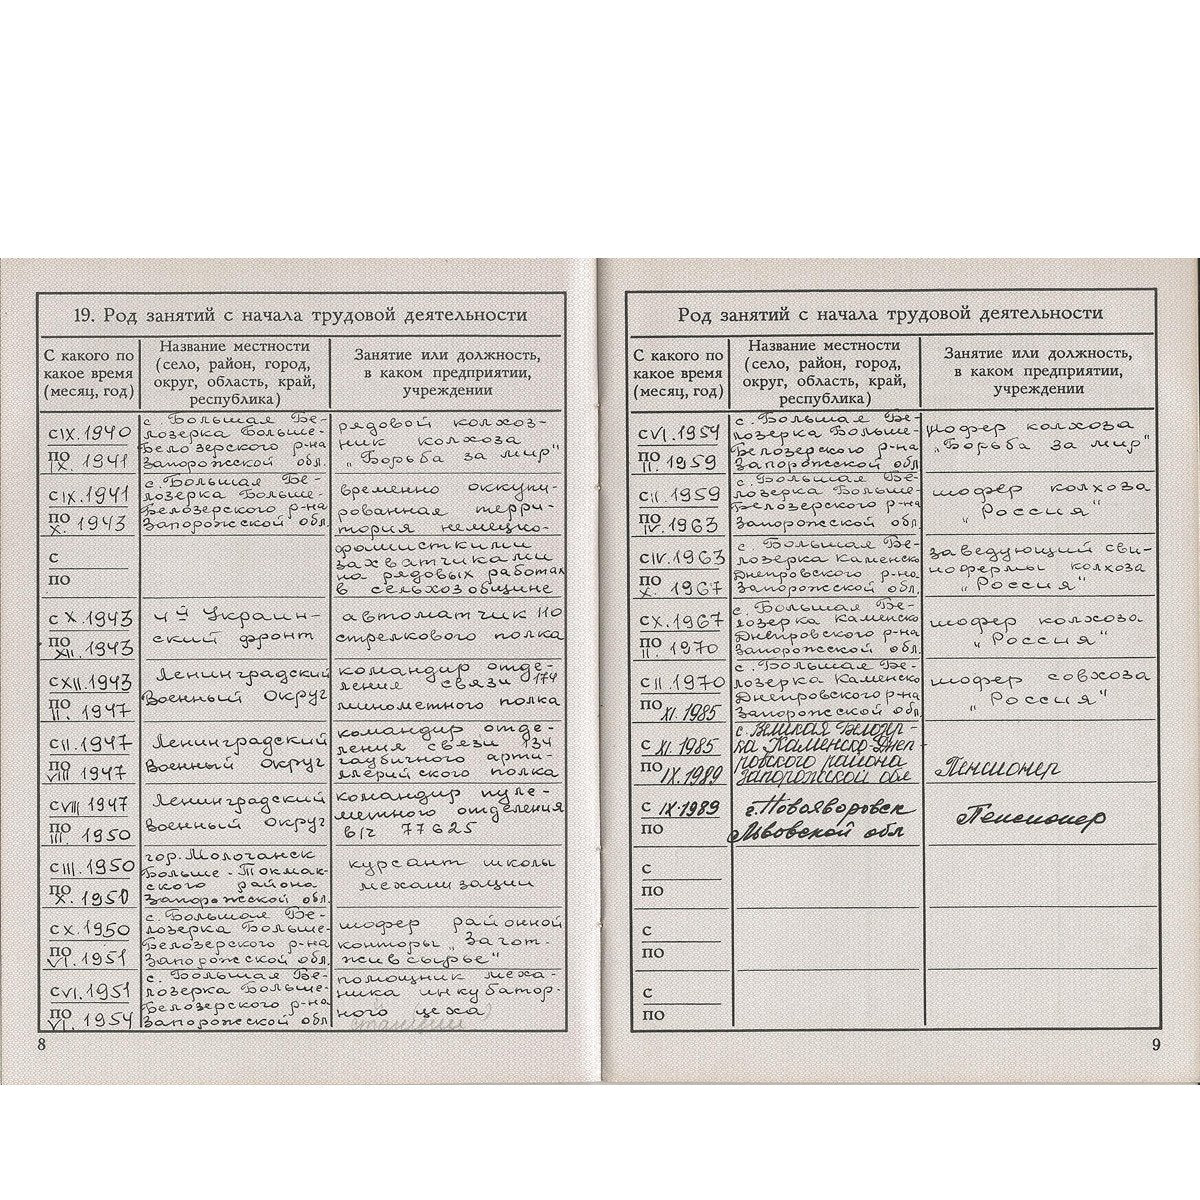 19. Род занятий с начала трудовой деятельности
С какого по
какое время
(месяц, год)
Название местности
(село, район, город,
округ, область, край,
республика)
Занятие или должность,
в каком предприятии,
учреждении
с IX. 1940
по IX. 1941
с. Большая Бе-
лозерка Больше-
Белозерского р-на
Запорожской обл.
рядовой колхоз-
ник колхоза
„Борьба за мир"
с IX. 1941
по X. 1943
с. Большая Бе-
лозерка Больше-
Белозерского р-на
Запорожской обл.
временно оккупи-
рованная терри-
тория немецко-
с
по
фашисткими
захватчиками
на рядовых работах
в сельхозобщине
с X. 1943
по XII. 1943
4й Украин-
ский фронт
автоматчик 110
стрелкового полка
с XII. 1943
по II. 1947
Ленинградский
Военный Округ
командир отде-
ления связи 174
минометного полка
с II. 1947
по VIII 1947
Ленинградский
Военный Округ
командир отде-
ления связи 134
гаубичного арти-
ллерийского полка
с VIII 1947
по III. 1950
Ленинградский
Военный Округ
командир пуле-
метного отделения
в/г 77625
с III. 1950
по X. 1950
гор. Молочанск
Больше-Токмак-
ского района
Запорожской обл.
курсант школы
механизации
с X. 1950
по VI. 1951
с. Большая Бе-
лозерка Больше-
Белозерского р-на
Запорожской обл.
шофер районной
конторы „Загот-
живсырье"
с VI. 1951
по VI. 1954
с. Большая Бе-
лозерка Больше-
Белозерского р-на
Запорожской обл
помощник меха-
ника инкубатор-
ного цеха
8
Род занятий с начала трудовой деятельности
С какого по
какое время
(месяц, год)
Название местности
(село, район, город,
округ, область, край,
республика)
Занятие или должность,
в каком предприятии,
учреждении
с VI. 1954
по II. 1959
с. Большая Бе-
лозерка Больше-
Белозерского р-на
Запорожской обл
шофер колхоза
„Борьба за мир"
с II. 1959
по IV. 1963
с. Большая Бе-
лозерка Больше-
Белозерского р-на
Запорожской обл
шофер колхоза
„Россия"
с IV. 1963
по X. 1967
с. Большая Бе-
лозерка Каменско
Днепровского р-на
Запорожской обл.
заведующий сви-
нофермы колхоза
„Россия"
с X. 1967
по II. 1970
с. Большая Бе-
лозерка Каменско
Днепровского р-на
Запорожской обл.
шофер колхоза
„Россия"
с II. 1970
по XI. 1985
с. Большая Бе-
лозерка Каменско
Днепровского р-на
Запорожской обл
шофер совхоза
„Россия"
с XI. 1985
по IX. 1989
с. Великая Белозер-
ка Каменско-Днеп-
ровского района
Запорожской обл
Пенсионер
с IX. 1989
по
г. Новояворовск
Львовской обл
Пенсионер
с
по
с
по
с
по
9